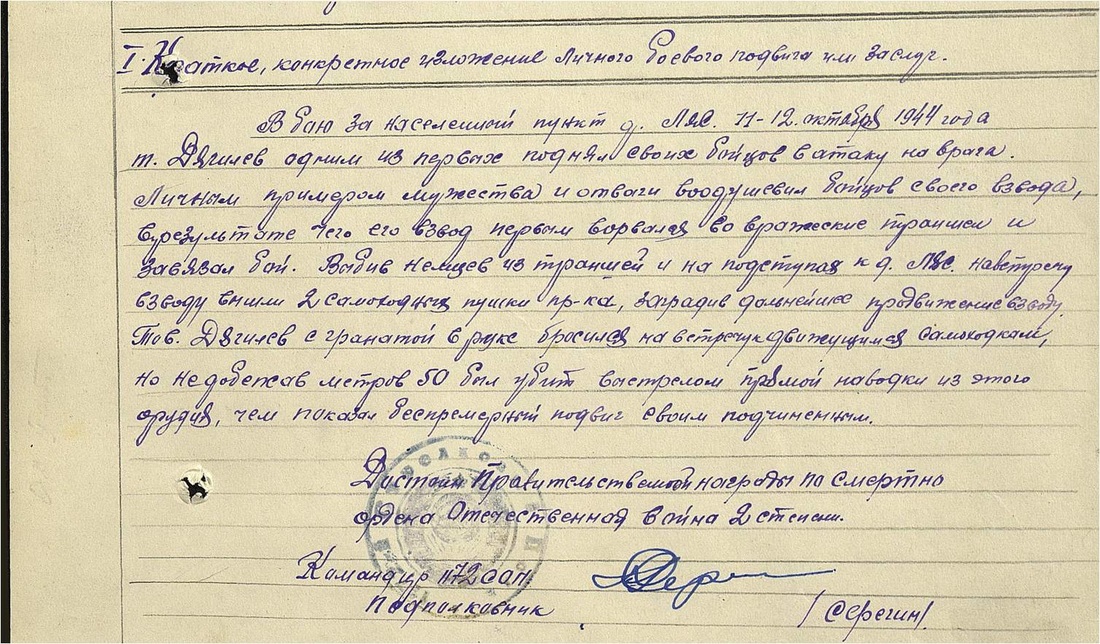 I. Краткое, конкретное изложение личного боевого подвига или заслуг.
В баю за населенный пункт д. Ляс. 11-12. октября 1944 года
т. Дягилев одним из первых поднял своих бойцов в атаку на врага.
Личным примером мужества и отваги воодушевил бойцов своего взвода,
в результате чего его взвод первым ворвался во вражеские траншеи и
завязал бой. Выбив немцев из траншей и на подступах к д. Ляс. навстречу
взводу вышли 2 самоходных пушки пр-ка, заградив дальнейшее продвижение взводу.
Тов. Дягилев с гранатой в руке бросился на встречу движущимся самоходкам,
но не добежав метров 50 был убит выстрелом прямой наводки из этого
орудия, чем показал беспремерный подвиг своим подчиненным.
Достоин Правительственной награды по смертно
ордена Отечественная война 2 степени.
Командир 1172 СОП
Подполковник /Серегин/